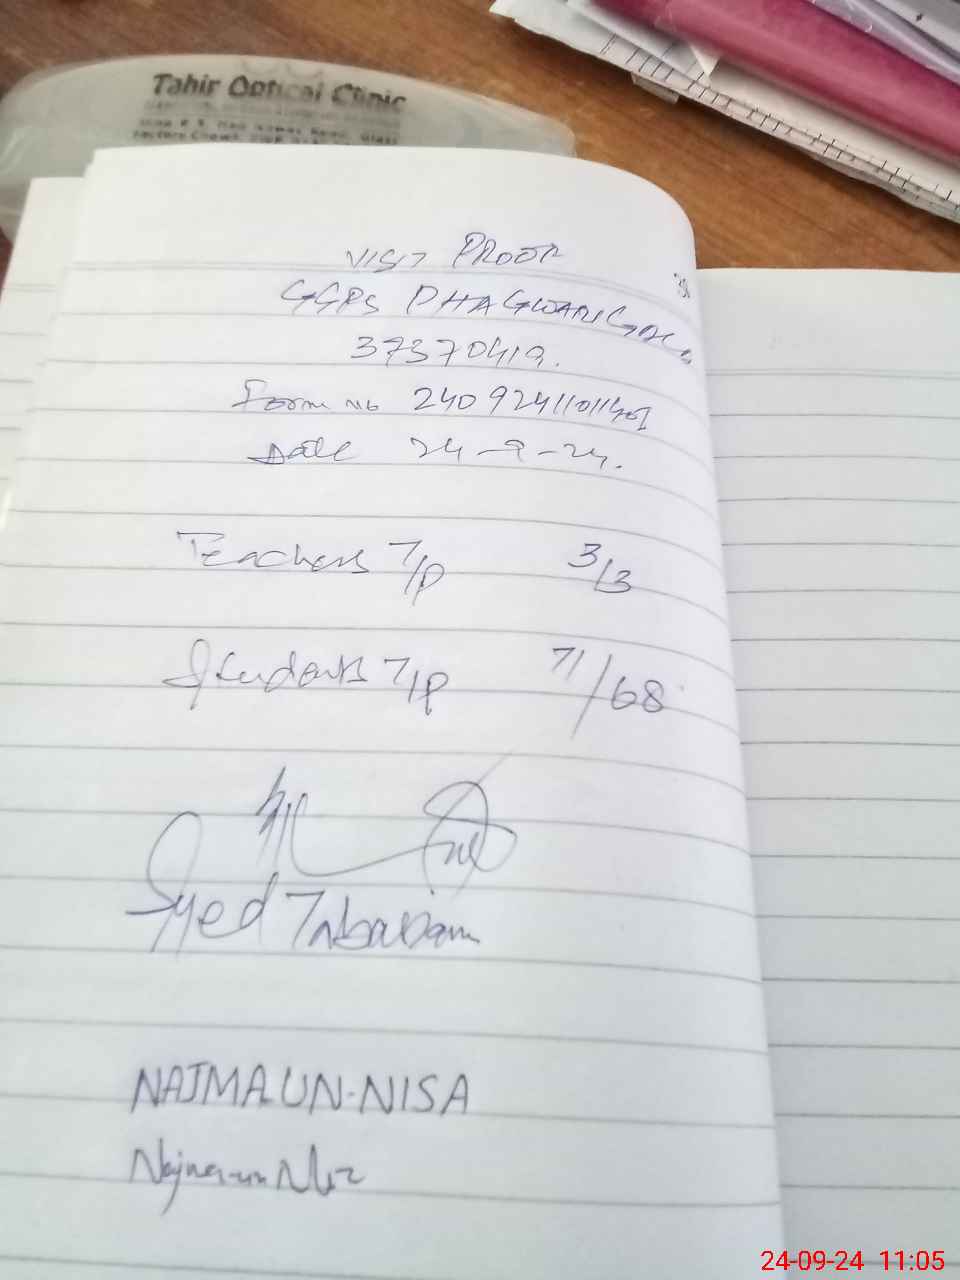 Tahir Optical Clinic
VISIT PROOF
GGPS DHAGWANGACH
37370419.
Form no 24092411011401
Date 24-9-24.
Teachers T/P 3/3
Students T/P 71/68
Syed Tabassam
NAJMA.UN.NISA
Najma-un-Nisa
24-09-24 11:05